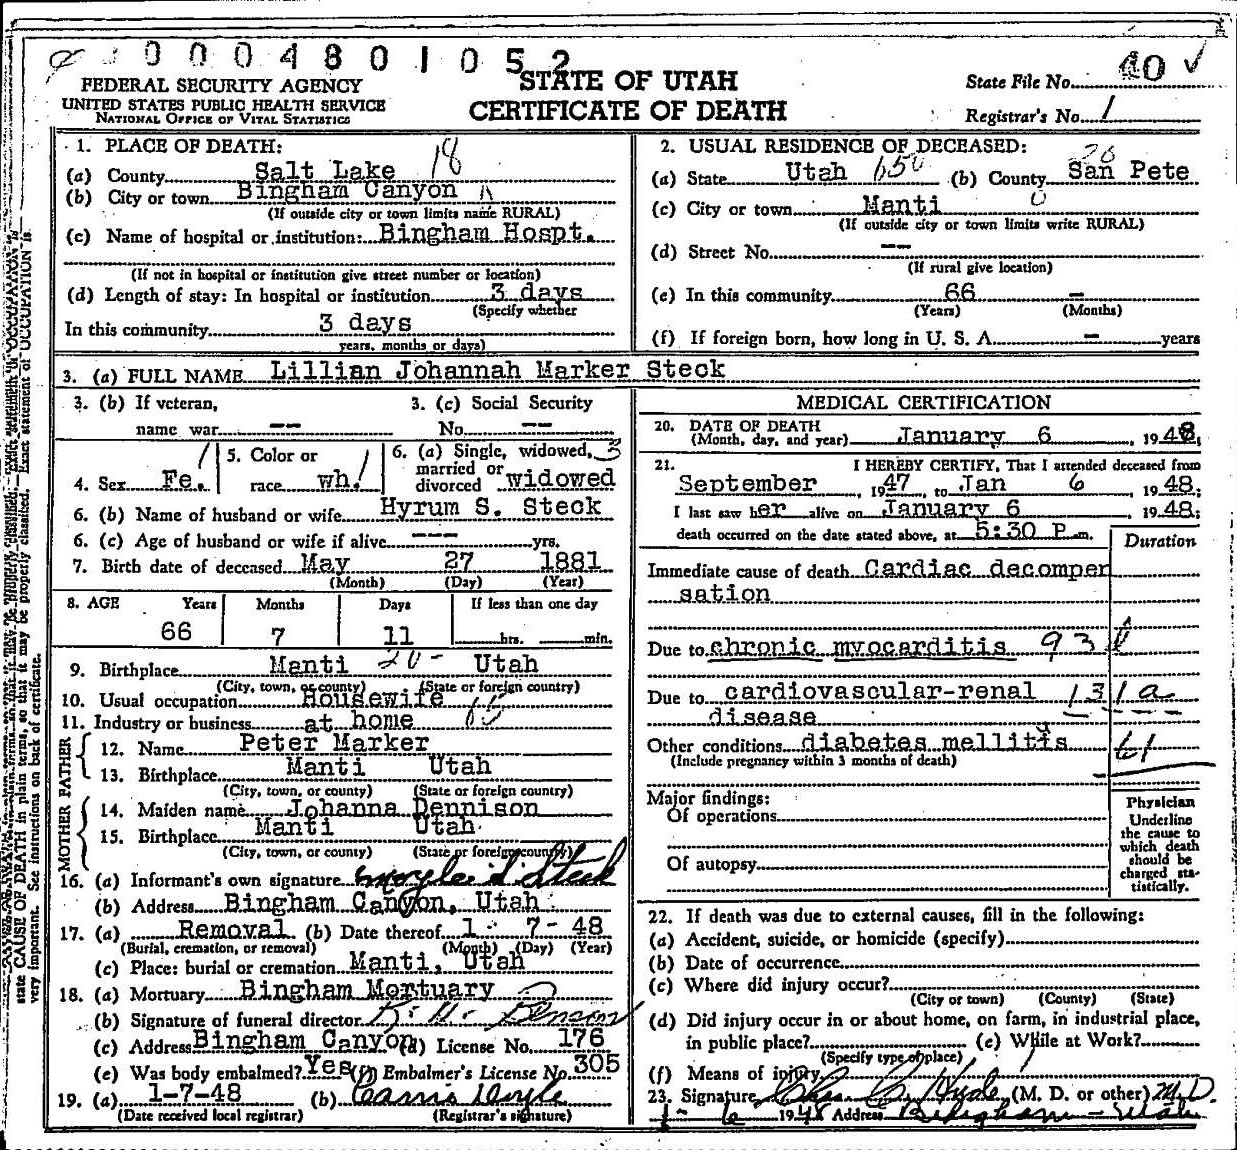 0 0 0 4 8 0 1 0 5 2
FEDERAL SECURITY AGENCY
UNITED STATES PUBLIC HEALTH SERVICE
NATIONAL OFFICE OF VITAL STATISTICS
STATE OF UTAH
CERTIFICATE OF DEATH
State File No. 40 ✓
Registrar's No. 1
1. PLACE OF DEATH: 18
(a) County Salt Lake
(b) City or town Bingham Canyon
(If outside city or town limits name RURAL)
(c) Name of hospital or institution: Bingham Hospt.
(If not in hospital or institution give street number or location)
(d) Length of stay: In hospital or institution 3 days
(Specify whether
In this community 3 days
years, months or days)
2. USUAL RESIDENCE OF DECEASED:
(a) State Utah 650 (b) County San Pete
(c) City or town Manti 0
(If outside city or town limits write RURAL)
(d) Street No. --
(If rural give location)
(e) In this community 66 -
(Years) (Months)
(f) If foreign born, how long in U. S. A. - years
3. (a) FULL NAME Lillian Johannah Marker Steck
3. (b) If veteran,
name war --
3. (c) Social Security
No. --
4. Sex Fe. 1
5. Color or
race wh. 1
6. (a) Single, widowed, 3
married or
divorced widowed
6. (b) Name of husband or wife Hyrum S. Steck
6. (c) Age of husband or wife if alive --- yrs.
7. Birth date of deceased May 27 1881
(Month) (Day) (Year)
8. AGE Years Months Days If less than one day
66 7 11 hrs. min.
9. Birthplace Manti 20- Utah
(City, town, or county) (State or foreign country)
10. Usual occupation Housewife
11. Industry or business at home
FATHER
12. Name Peter Marker
13. Birthplace Manti Utah
(City, town, or county) (State or foreign country)
MOTHER
14. Maiden name Johanna Dennison
15. Birthplace Manti Utah
(City, town, or county) (State or foreign country)
16. (a) Informant's own signature Moyle S Steck
(b) Address Bingham Canyon, Utah
17. (a) Removal (b) Date thereof 1 - 7- 48
(Burial, cremation, or removal) (Month) (Day) (Year)
(c) Place: burial or cremation Manti, Utah
18. (a) Mortuary Bingham Mortuary
(b) Signature of funeral director Benson
(c) Address Bingham Canyon (d) License No. 176
(e) Was body embalmed? Yes (f) Embalmer's License No. 305
19. (a) 1-7-48 (b) Doyle
(Date received local registrar) (Registrar's signature)
MEDICAL CERTIFICATION
20. DATE OF DEATH
(Month, day, and year) January 6, 1948;
21. I HEREBY CERTIFY, That I attended deceased from
September, 1947, to Jan 6, 1948;
I last saw her alive on January 6, 1948;
death occurred on the date stated above, at 5:30 P.m.
Duration
Immediate cause of death Cardiac decomper
sation
Due to chronic myocarditis 93
Due to cardiovascular-renal 131a
disease
Other conditions diabetes mellitis 61
(Include pregnancy within 3 months of death)
Major findings:
Of operations
Of autopsy
Physician
Underline
the cause to
which death
should be
charged sta-
tistically.
22. If death was due to external causes, fill in the following:
(a) Accident, suicide, or homicide (specify)
(b) Date of occurrence
(c) Where did injury occur?
(City or town) (County) (State)
(d) Did injury occur in or about home, on farm, in industrial place,
in public place? (e) While at Work?
(Specify type of place)
(f) Means of injury
23. Signature (M. D. or other) M.D.
1 - 6 1948 Address Bingham - Utah
state CAUSE OF DEATH in plain terms, so that it may be properly classified. Exact statement of OCCUPATION is
very important. See instructions on back of certificate.